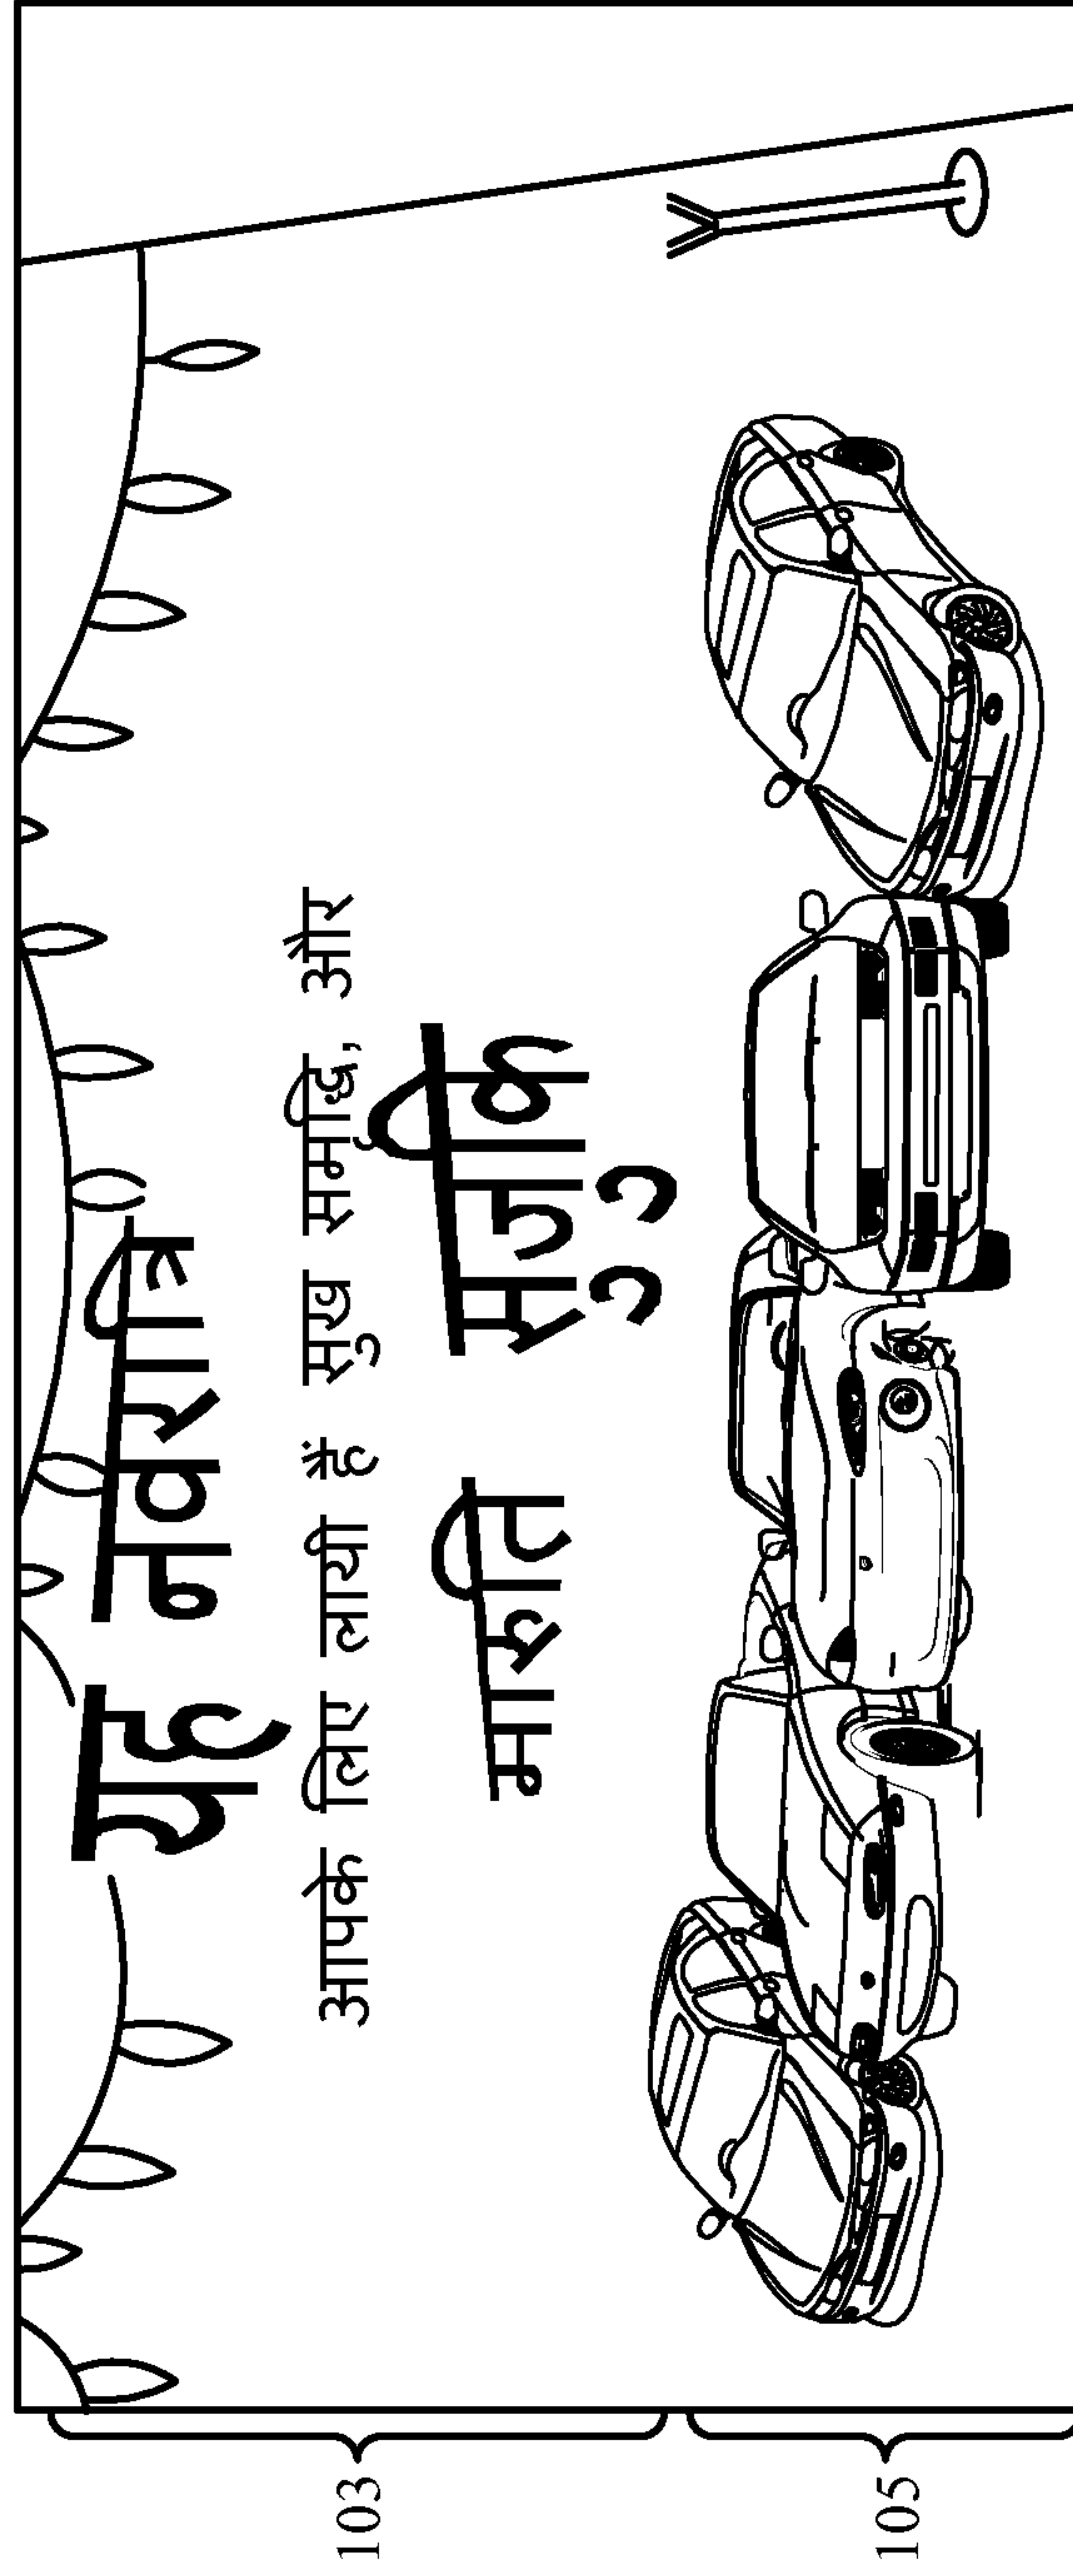 यह नवरात्रि
आपके लिए लायी हैं सुख समृद्धि, और
मारुति सुजुकि
103
105